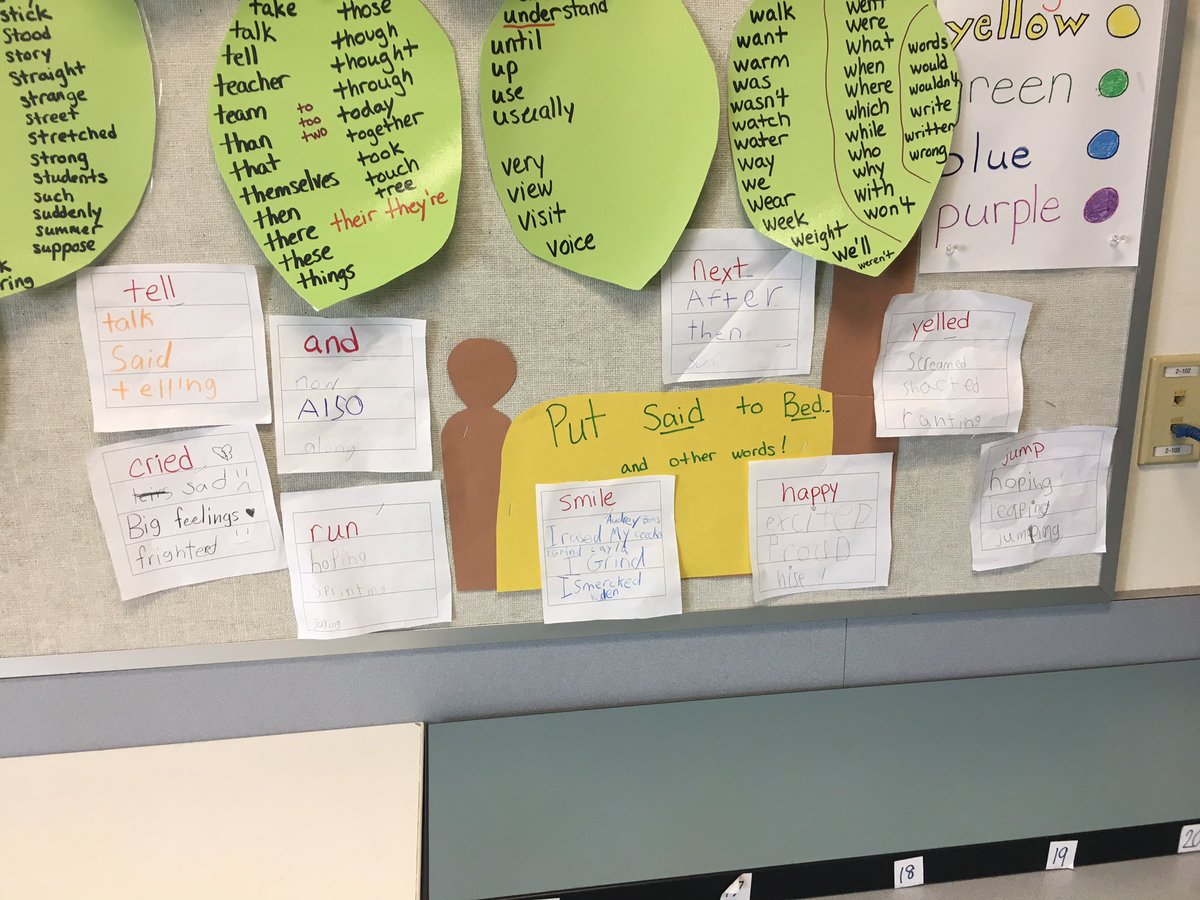 stick
stood
story
straight
strange
street
stretched
strong
students
such
suddenly
summer
suppose
ring
take
talk
tell
teacher
team
than
that
themselves
then
there
these
things
to
too
two
those
though
thought
through
today
together
took
touch
tree
their they're
understand
until
up
use
usually
very
view
visit
voice
walk
want
warm
was
wasn't
watch
water
way
we
wear
week
weight
we'll
weren't
went
were
what
when
where
which
while
who
why
with
won't
words
would
wouldn't
write
written
wrong
yellow
reen
blue
purple
tell
talk
Said
telling
and
Also
along
next
After
then
yelled
screamed
shacted
ranting
cried
sad
Big feelings
frighterd
run
hoping
Sprinting
Put Said to Bed..
and other words!
smile
Audrey
I rased My
I Grind
I Smercked
happy
exciteD
ProuD
hise!
jump
hoping
leaping
jumping
2-102
2-103
17
18
19
20